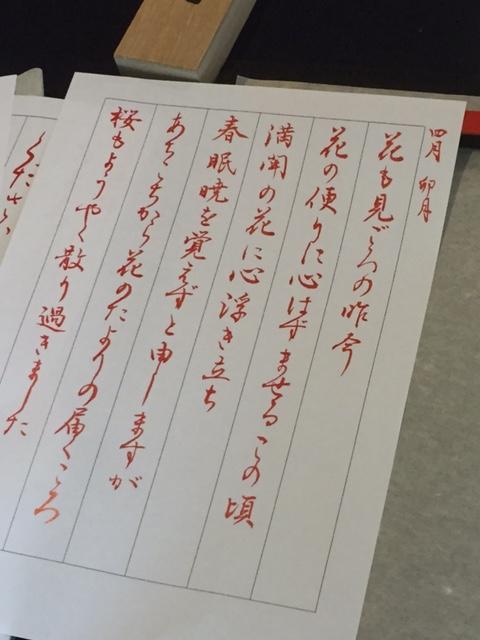 四月 卯月
花も見ごろの昨今
花の便りに心はずませるこの頃
満開の花に心浮き立ち
春眠暁を覚えずと申しますが
あちこちから花のたよりの届くころ
桜もようやく散り過ぎました